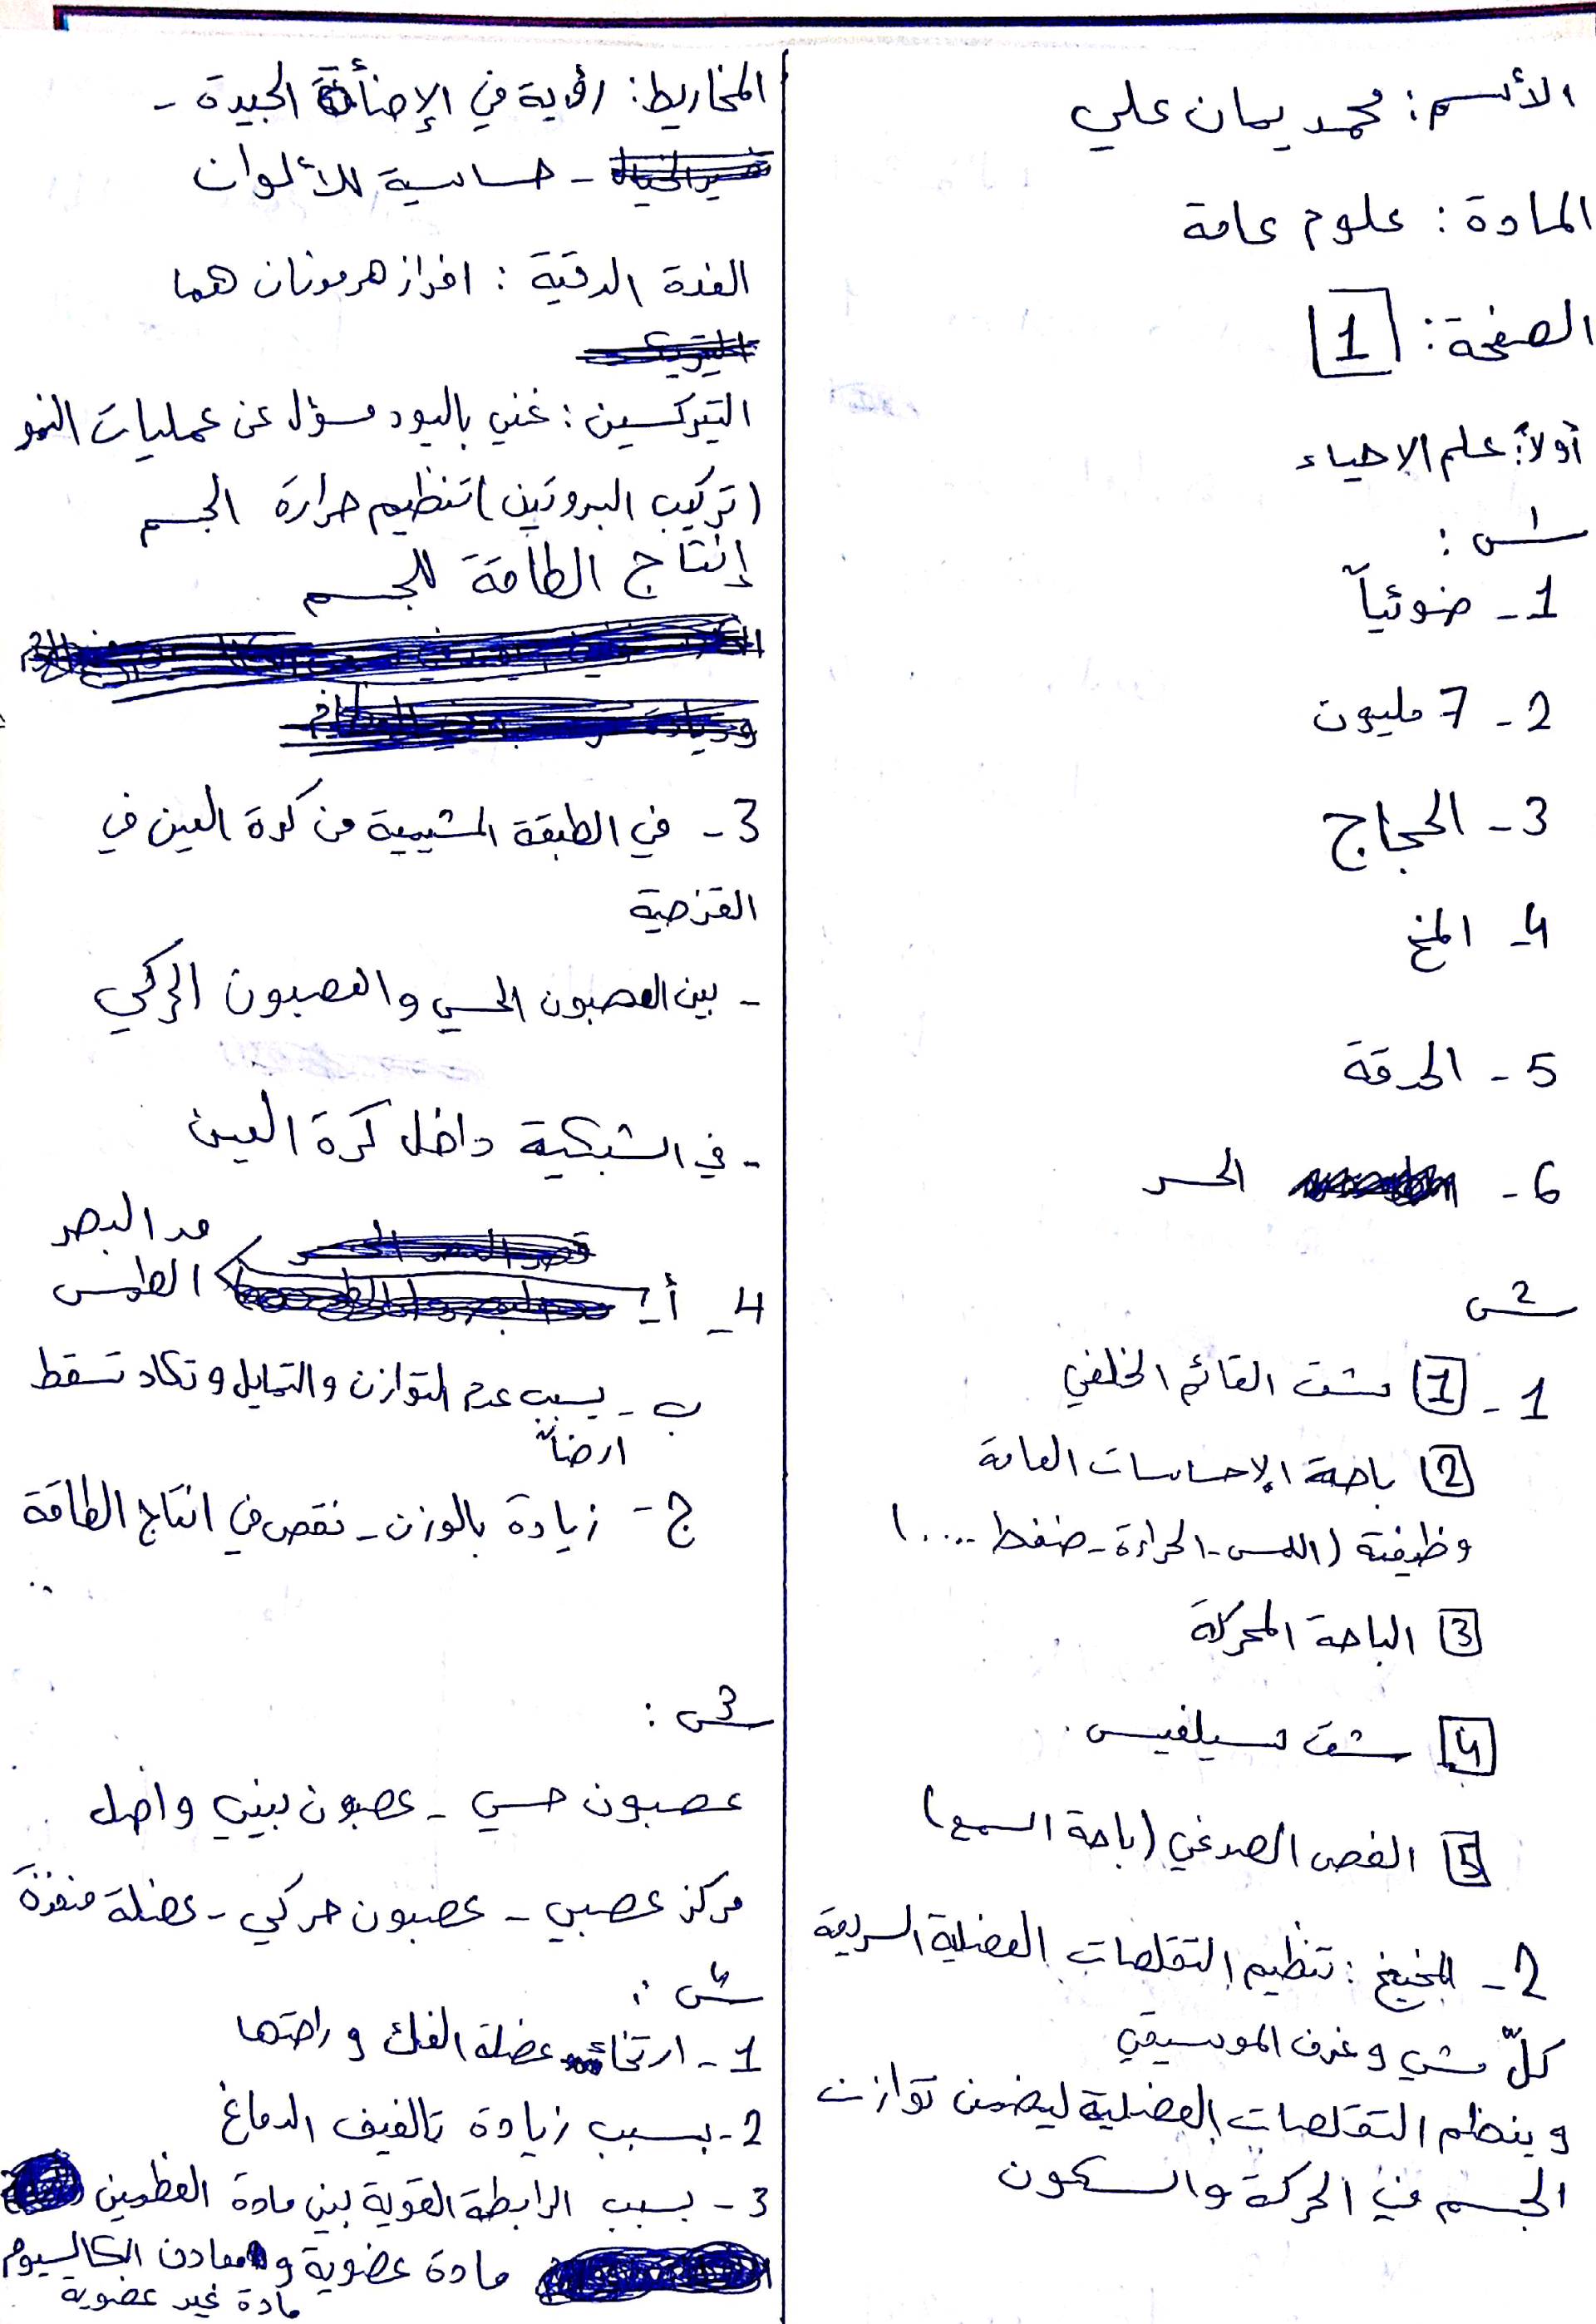 الأسم: محمد يمان علي
المادة: علوم عامة
الصفحة: 1
أولاً: علم الاحياء
س1:
1- ضوئياً
2- 7 مليون
3- الحجاج
4- المخ
5- الحدقة
6- الحسر
س2
1- 1 شق القائم الخلفي
2 باحة الإحساسات العامة
وظيفتة (اللمس-الحرارة-ضغط ....)
3 الباحة المحركة
4 شق سيلفيس.
5 الفص الصدغي (باحة السمع)
2- المخيخ: تنظيم التقلصات العضلية السريعة
كلّ مشي وعزف الموسيقي
وينظم التقلصات العضلية ليضمن توازن
الجسم في الحركة والسكون
المخاريط: رؤية في الإضأة الجيدة -
- حساسية للألوان
الغدة الدرقية: افراز هرمونان هما
التيركسين: غني باليود مسؤل عن عمليات النمو
(تركيب البروتين) تنظيم حرارة الجسم
إنتاج الطاقة للجسم
3- في الطبقة المشيمية من كرة العين في
القزحية
- بين العصبون الحسي والعصبون الحركي
- في الشبكية داخل كرة العين
4- أ- مد البصر
الطمس
ب- يسبب عدم التوازن والتمايل وتكاد تسقط
ارضاً
ج- زيادة بالوزن - نقص في انتاج الطاقة
س3:
عصبون حسي - عصبون بيني واصل
مركز عصبي - عصبون حركي - عضلة منفذة
س4:
1- ارتخاء عضلة الفك وراحتها
2- بسبب زيادة تالفيف الدماغ
3- بسبب الرابطة القوية بين مادة العظمين
مادة عضوية ومعادن الكالسيوم
مادة غير عضوية